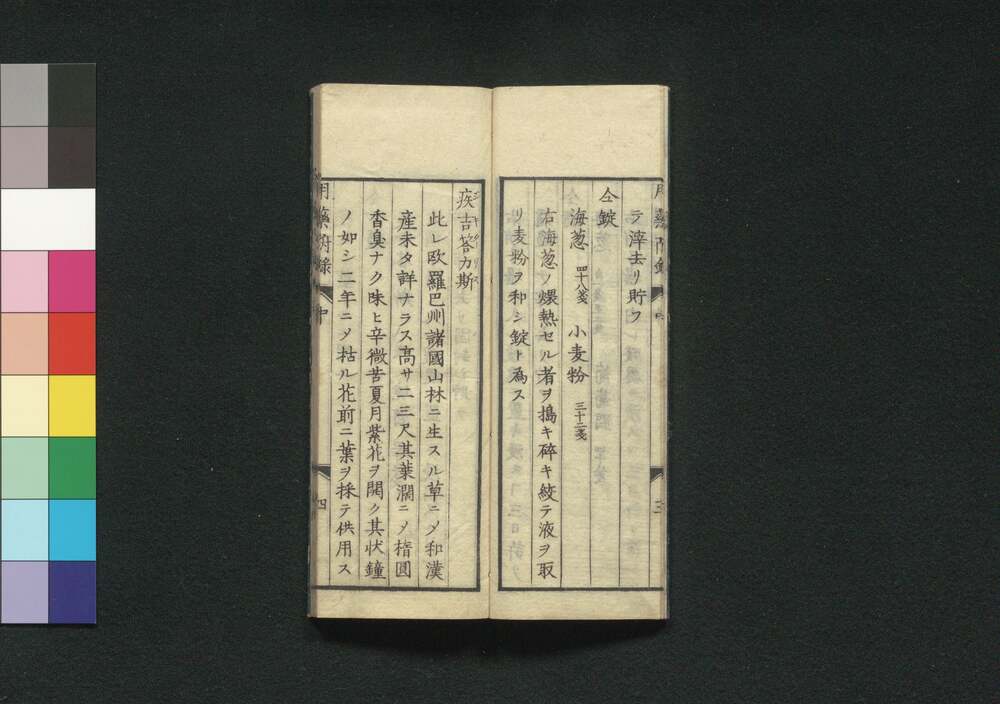 テ滓去リ貯フ
仝錠
海葱 四十八箋 小麦粉 三十二箋
右海葱ノ煨熱セル者ヲ搗キ碎キ絞テ液ヲ取
リ麦粉ヲ和シ錠ト為ス
三
疾吉答力斯
此レ欧羅巴州諸國山林ニ生スル草ニメ和漢
産未タ詳ナラス高サ二三尺其葉濶ニメ楕圓
香臭ナク味ヒ辛微苦夏月紫花ヲ開ク其状鐘
ノ如シ二年ニメ枯ル花前ニ葉ヲ採テ供用ス
中
四